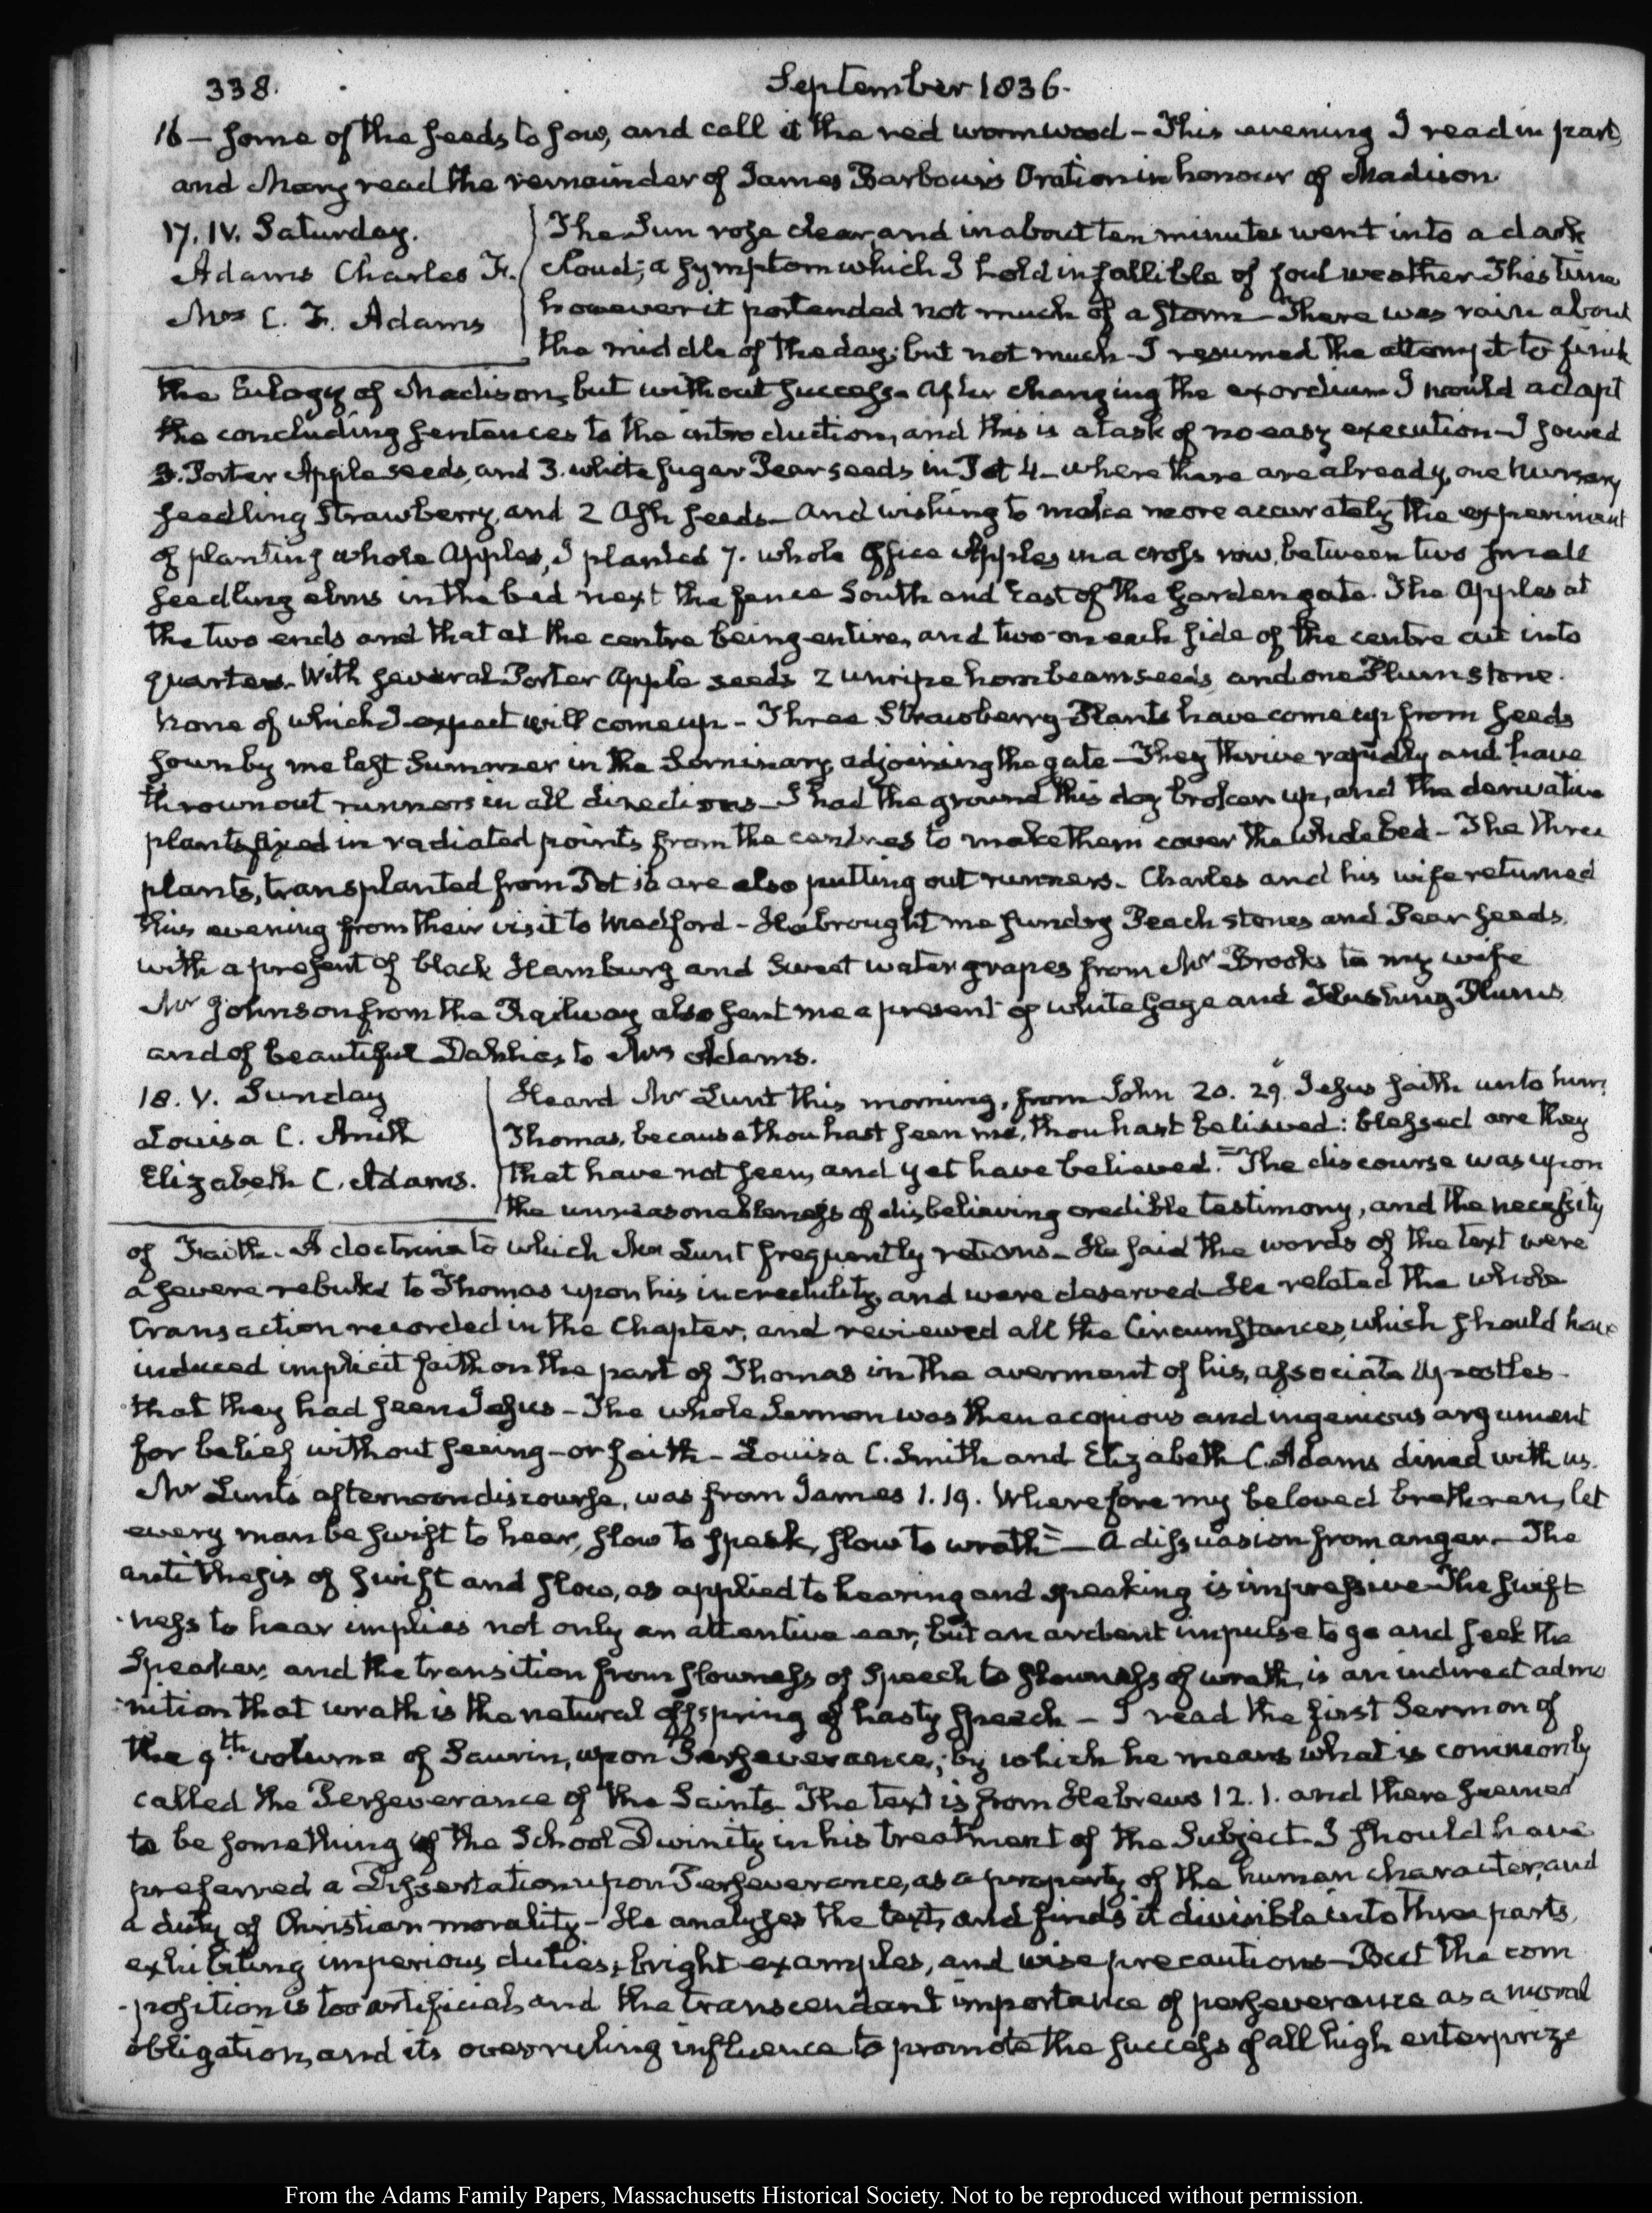 338.
September 1836.
16 — some of the seeds to sow, and call it the red wormwood — This evening I read in part,
and Mary read the remainder of James Barbour's Oration in honour of Madison
17. IV. Saturday.
Adams Charles F.
Mrs C. F. Adams
The Sun rose clear, and in about ten minutes went into a dark
cloud; a symptom which I hold infallible of foul weather. This time
however it portended not much of a storm — There was rain about
the middle of the day; but not much — I resumed the attempt to finish
the Eulogy of Madison, but without success. After changing the exordium I would adapt
the concluding sentences to the introduction, and this is a task of no easy execution — I sowed
3. Porter Apple seeds, and 3. white sugar Pear seeds in Pot 4 — where there are already, one nursery
seedling Strawberry, and 2 Ash seeds — And wishing to make more accurately the experiment
of planting whole Apples, I planted 7. whole Office Apples in a cross row, between two small
seedling elms in the bed next the fence South and East of the Garden gate. The Apples at
the two ends and that at the centre being entire, and two on each side of the centre cut into
quarters. With several Porter Apple seeds 2 unripe hornbeam seeds, and one Plum stone.
None of which I expect will come up — Three Strawberry Plants have come up from seeds
sown by me last Summer in the Seminary, adjoining the gate — They thrive rapidly and have
thrown out runners in all directions — I had the ground this day broken up, and the derivative
plants fixed in radiated points from the centres to make them cover the whole bed — The three
plants, transplanted from Pot 16 are also putting out runners. Charles and his wife returned
this evening from their visit to Medford — He brought me sundry Peach stones and Pear seeds,
with a present of black Hamburg and Sweet water grapes from Mr Brooks to my wife
Mr Johnson from the Railway also sent me a present of white Gage and Flushing Plums
and of beautiful Dahlias to Mrs Adams.
18. V. Sunday
Louisa C. Smith
Elizabeth C. Adams.
Heard Mr Lunt this morning, from John 20. 29. "Jesus saith unto him,
Thomas, because thou hast seen me, thou hast believed: blessed are they
that have not seen, and yet have believed." The discourse was upon
the unreasonableness of disbelieving credible testimony, and the necessity
of Faith. A doctrine to which Mr Lunt frequently returns — He said the words of the text were
a severe rebuke to Thomas upon his incredulity, and were deserved. He related the whole
transaction recorded in the Chapter, and reviewed all the Circumstances, which should have
induced implicit faith on the part of Thomas in the averment of his, associate Apostles —
that they had seen Jesus — The whole Sermon was then a copious and ingenious argument
for belief without seeing — or faith — Louisa C. Smith and Elizabeth C. Adams dined with us.
Mr Lunt's afternoon discourse, was from James 1. 19. Wherefore my beloved brethren, let
every man be swift to hear, slow to speak, slow to wrath" — A dissuasion from anger — The
antithesis of swift and slow, as applied to hearing and speaking is impressive. The swift
-ness to hear implies not only an attentive ear, but an ardent impulse to go and seek the
Speaker, and the transition from slowness of Speech to slowness of wrath, is an indirect admo
-nition that wrath is the natural offspring of hasty speech — I read the first Sermon of
the 9th volume of Saurin, upon Perseverance; by which he means what is commonly
called the Perseverance of the Saints. The text is from Hebrews 12. 1. and there seemed
to be something of the School Divinity in his treatment of the Subject. I should have
preferred a Dissertation upon Perseverance, as a property of the human character, and
a duty of Christian morality — He analyzes the text, and finds it divisible into three parts,
exhibiting imperious duties, bright examples, and wise precautions — But the com
-position is too artificial, and the transcendant importance of perseverance as a moral
obligation, and its overruling influence to promote the success of all high enterprize
From the Adams Family Papers, Massachusetts Historical Society. Not to be reproduced without permission.